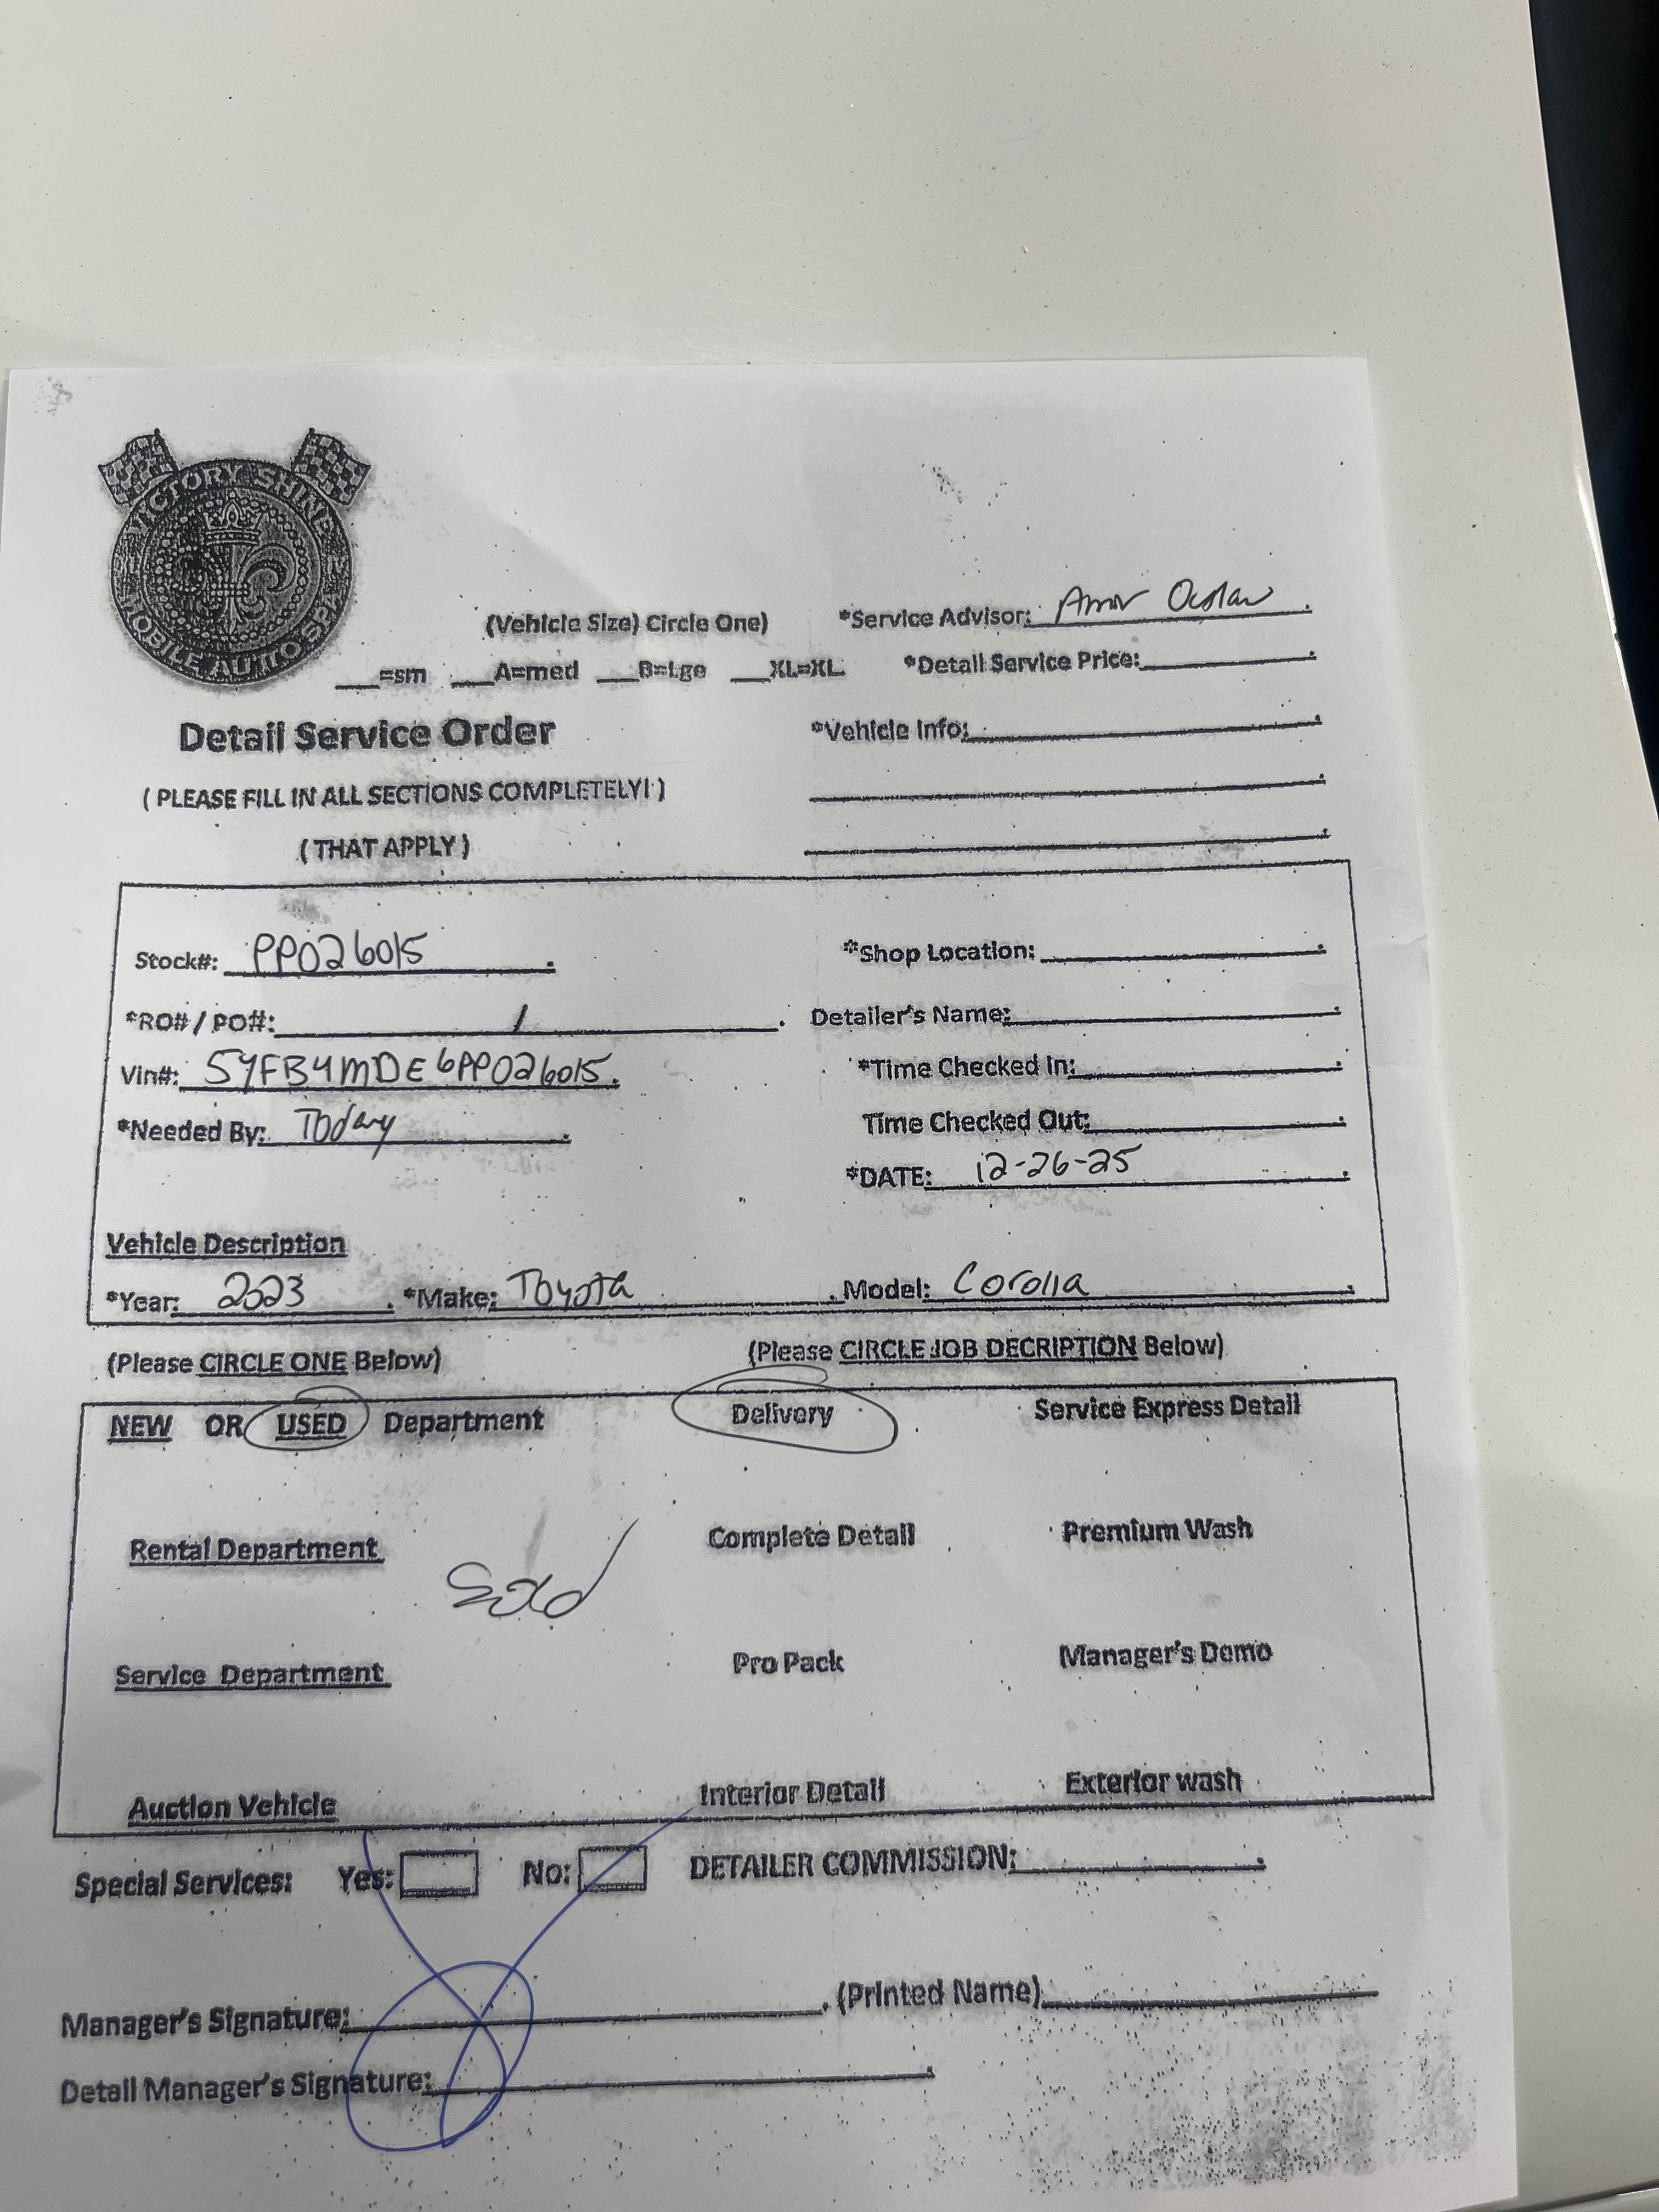 VICTORY SHINE
MOBILE AUTO SPA
(Vehicle Size) Circle One)
*Service Advisor:
___=sm ___A=med ___B=Lge ___XL=XL
*Detail Service Price:
Detail Service Order
*Vehicle Info:
( PLEASE FILL IN ALL SECTIONS COMPLETELY! )
( THAT APPLY )
Stock#: PP026015
*Shop Location:
*RO# / PO#: /
Detailer's Name:
Vin#: 5YFB4MDE6PP026015
*Time Checked In:
*Needed By: Today
Time Checked Out:
*DATE: 12-26-25
Vehicle Description
*Year: 2023 *Make: Toyota Model: Corolla
(Please CIRCLE ONE Below)
(Please CIRCLE JOB DECRIPTION Below)
NEW OR USED Department
Delivery
Service Express Detail
Rental Department
Sold
Complete Detail
Premium Wash
Service Department
Pro Pack
Manager's Demo
Auction Vehicle
Interior Detail
Exterior wash
Special Services: Yes: No: DETAILER COMMISSION:
Manager's Signature: (Printed Name)
Detail Manager's Signature: